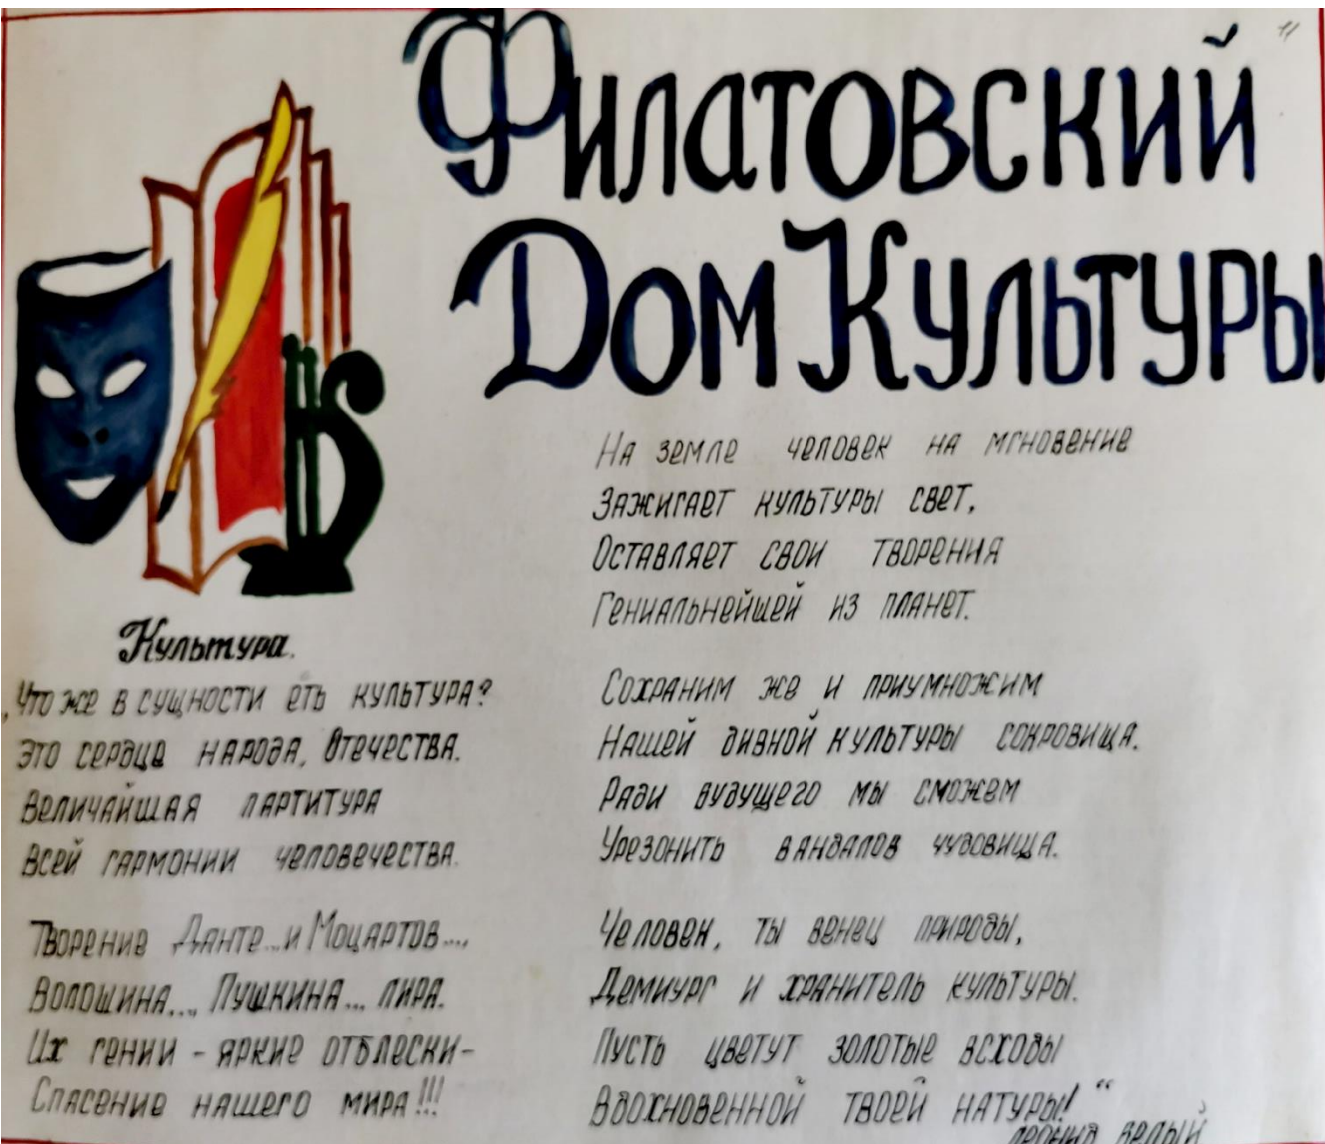 Филатовский
Дом Культуры
Культура.
„Что же в сущности еть культура?
Это сердце народа, Отечества.
Величайшая партитура
Всей гармонии человечества.
Творение Данте...и Моцартов...,
Волошина..., Пушкина... лира.
Их гении - яркие отблески-
Спасение нашего мира!!!
На земле человек на мгновение
Зажигает культуры свет,
Оставляет свои творения
Гениальнейшей из планет.
Сохраним же и приумножим
Нашей дивной культуры сокровища.
Ради будущего мы сможем
Урезонить вандалов чудовища.
Человек, ты венец природы,
Демиург и хранитель культуры.
Пусть цветут золотые всходы
Вдохновенной твоей натуры!“
Леонид Белый